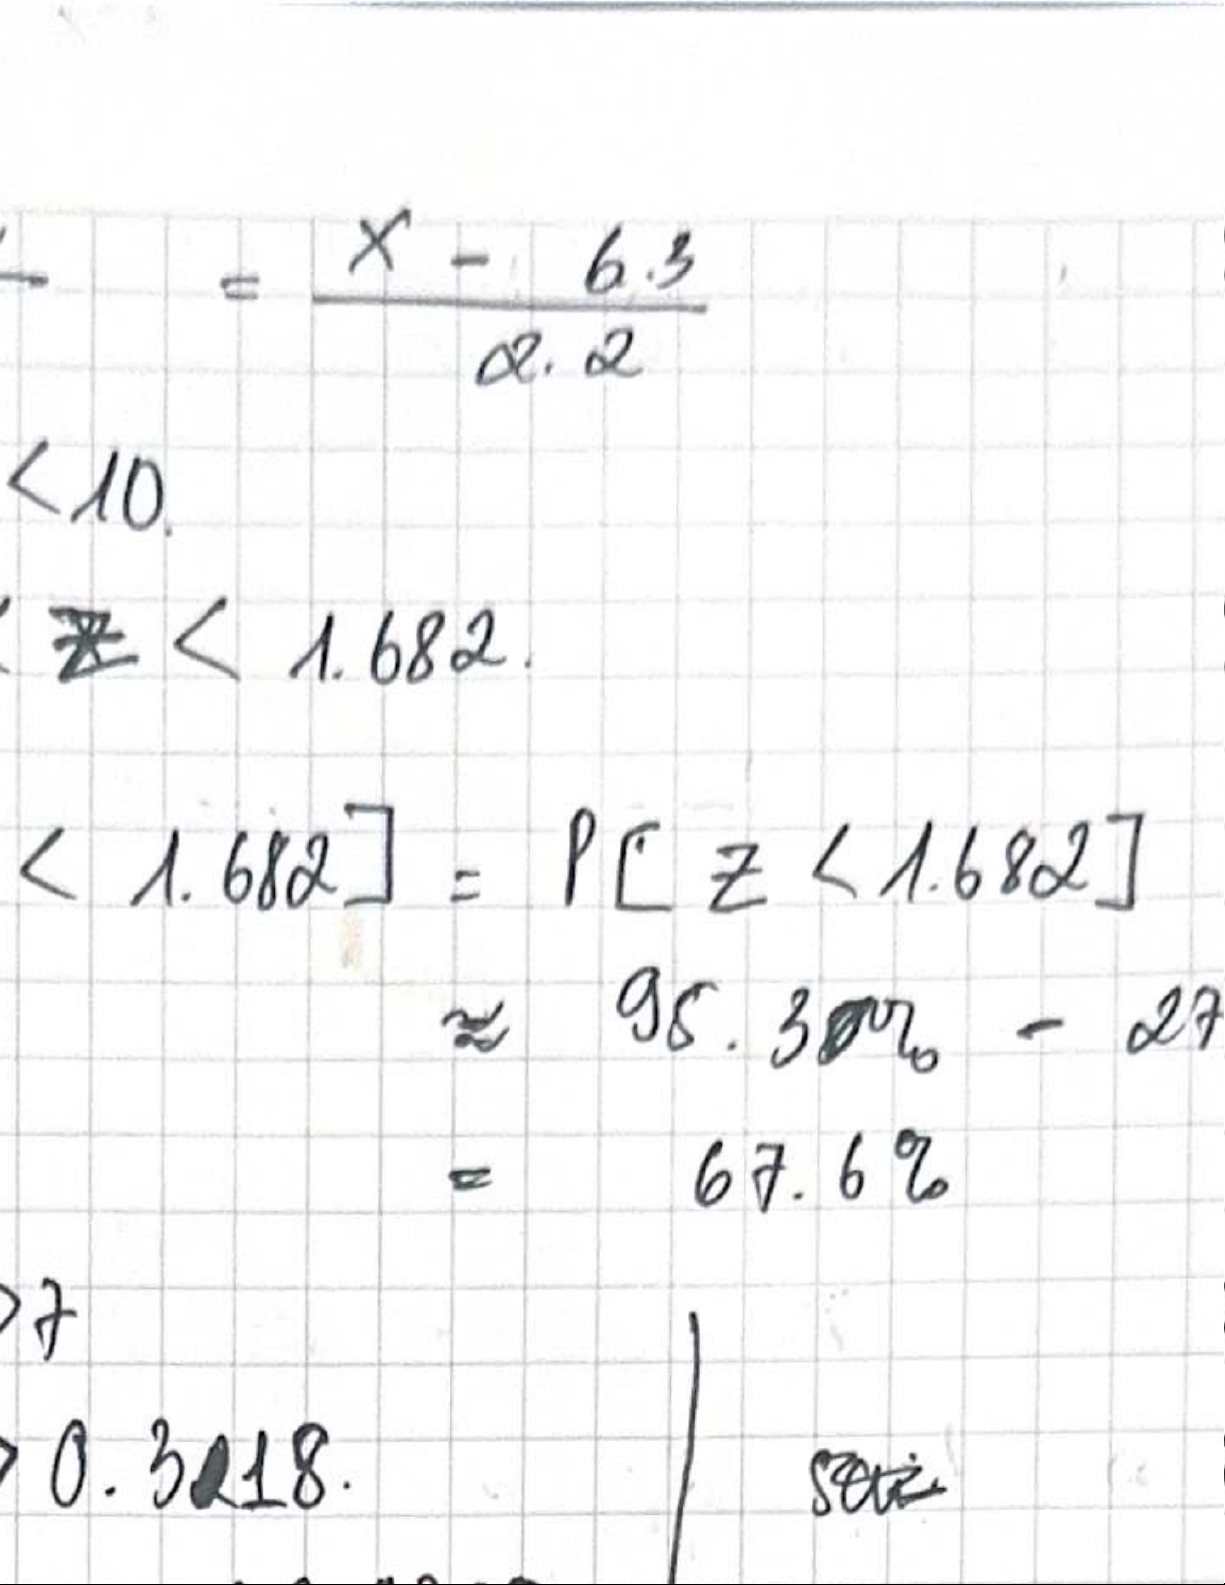 = X - 6.3
2.2
< 10.
< Z < 1.682.
< 1.682] = P[ Z < 1.682]
≈ 95.3% - 27
= 67.6%
>7
> 0.3218.